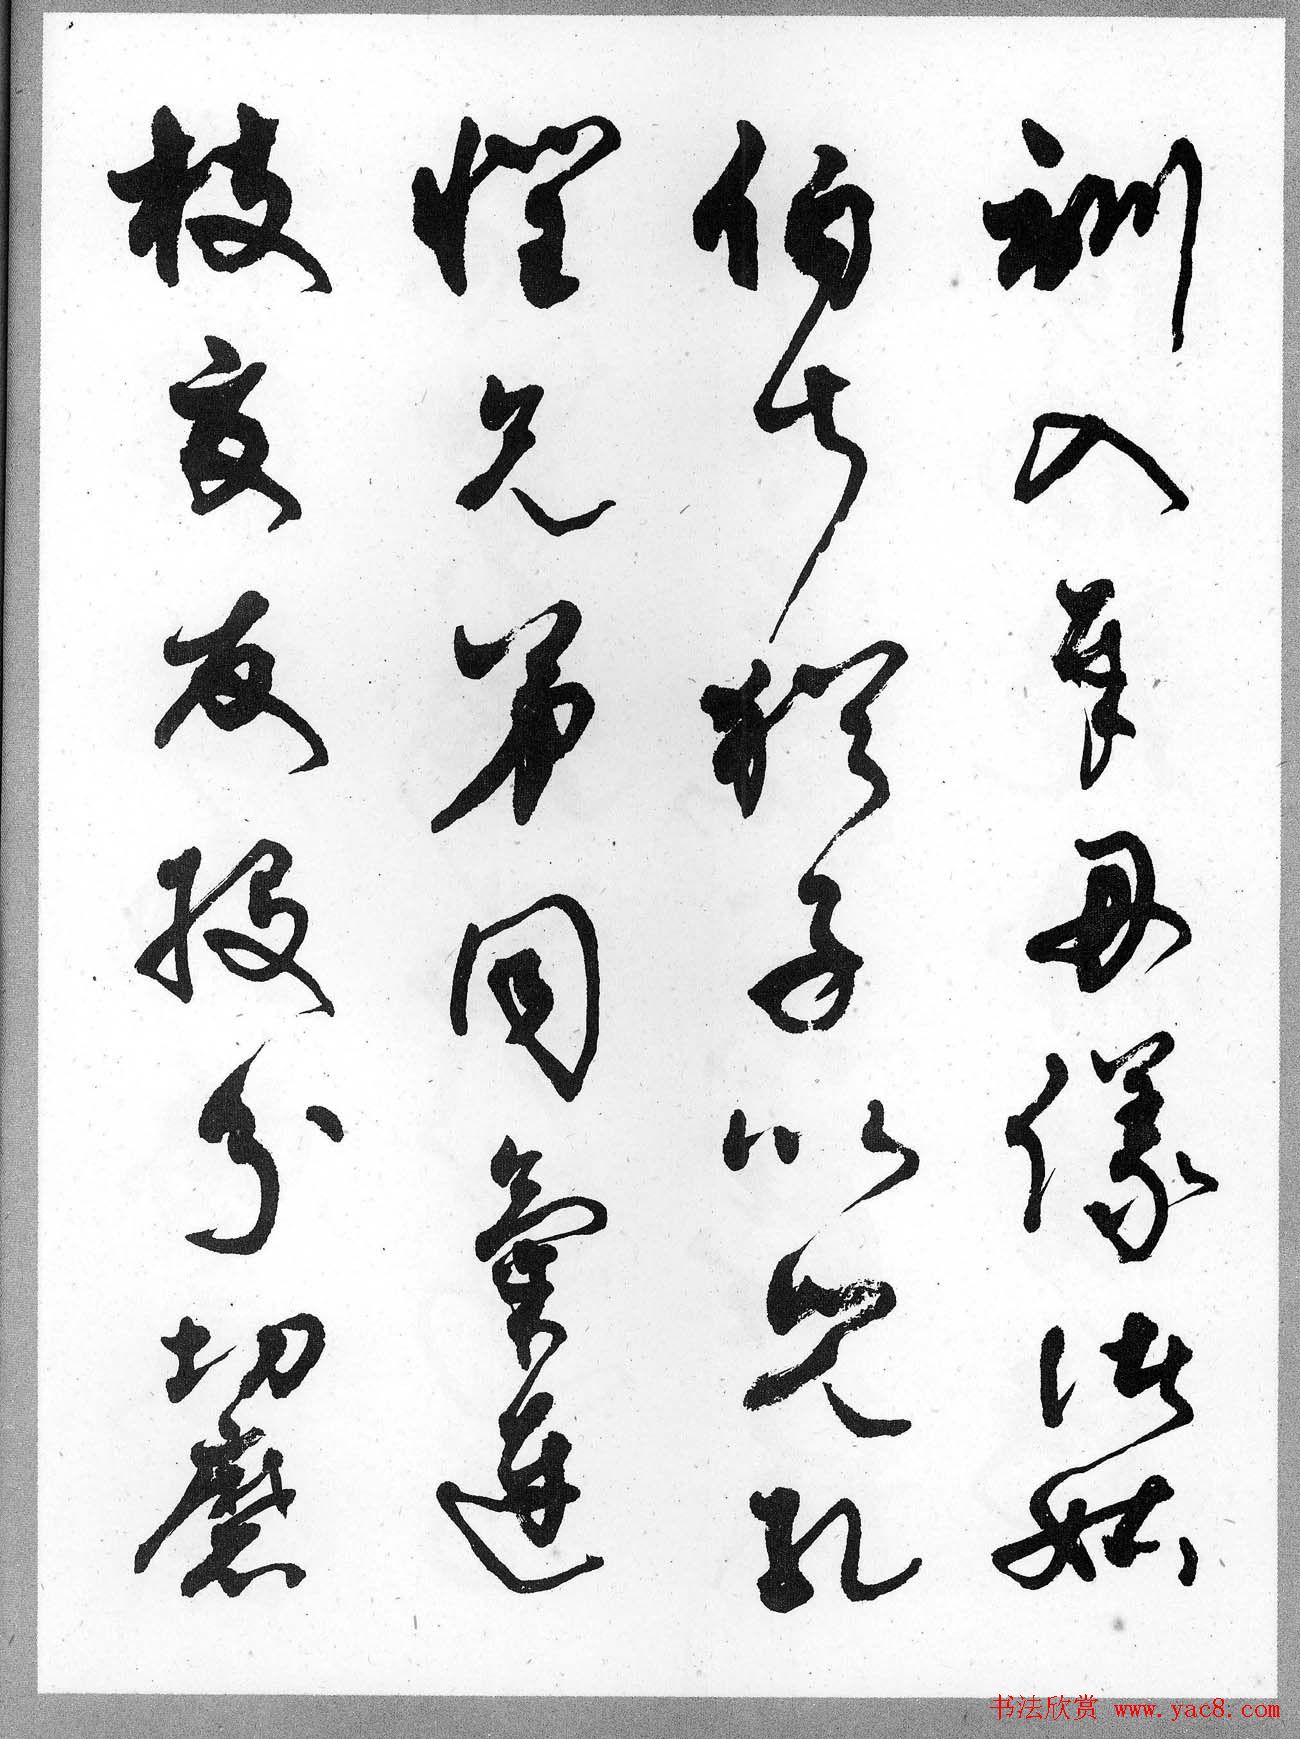 訓入奉母儀諸姑
伯叔猶子比兒孔
懷兄弟同氣連
枝交友投分切磨
书法欣赏 www.yac8.com